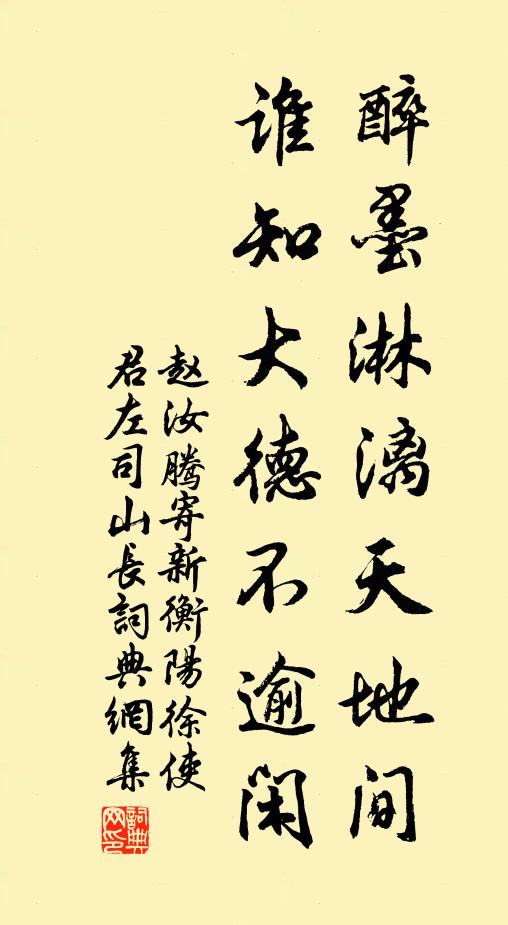 醉墨淋漓天地间
谁知大德不逾闲
赵汝腾寄新衡陽徐使
君左司山长詞典網集
詞典
网印